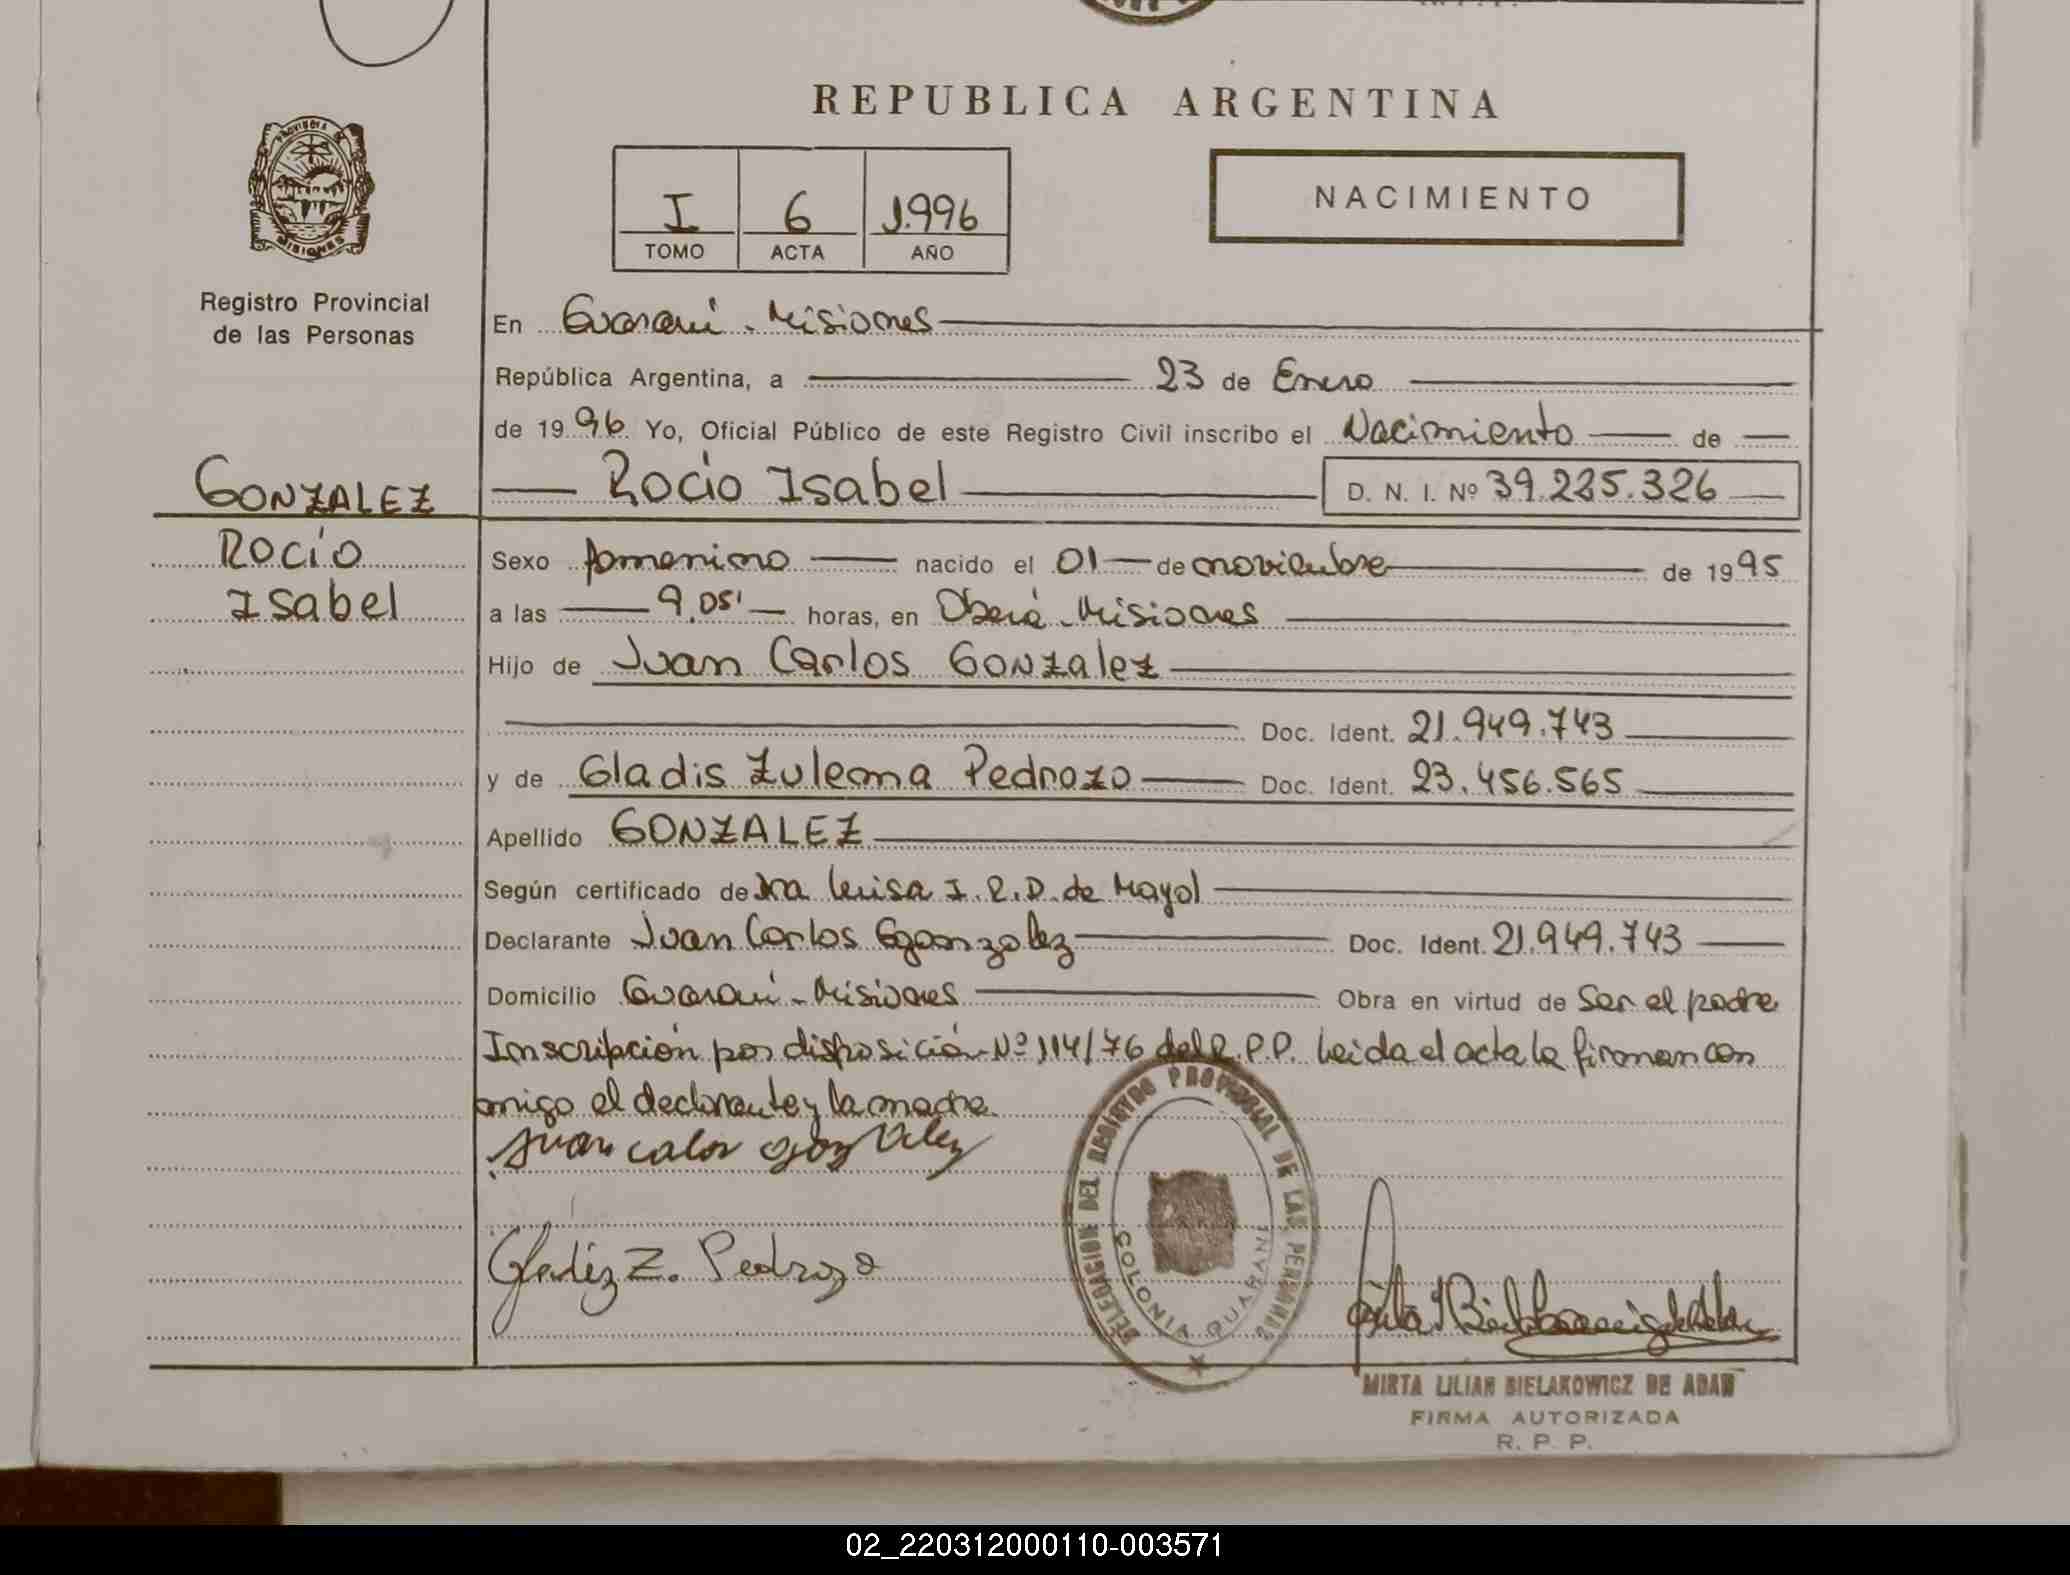 REPUBLICA ARGENTINA
PROVINCIA DE
MISIONES
Registro Provincial
de las Personas
I 6 1.996
TOMO ACTA AÑO
NACIMIENTO
En Guaraní - Misiones
República Argentina, a 23 de Enero
de 1996 Yo, Oficial Público de este Registro Civil inscribo el Nacimiento de
GONZALEZ
Rocío
Isabel
Rocío Isabel D. N. I. Nº 39.225.326
Sexo femenino nacido el 01 de noviembre de 1995
a las 9.05' horas, en Oberá - Misiones
Hijo de Juan Carlos Gonzalez
Doc. Ident. 21.949.743
y de Gladis Zulema Pedrozo Doc. Ident. 23.456.565
Apellido GONZALEZ
Según certificado de Dra Luisa I. R. D. de Mayol
Declarante Juan Carlos Gonzalez Doc. Ident. 21.949.743
Domicilio Guaraní - Misiones Obra en virtud de Ser el padre
Inscripción por disposición Nº 114/76 del R.P.P. Leida el acta la firman con
migo el declarante y la madre.
Juan Calos gonzalez
Gladiz Z. Pedrozo
DELEGACION DEL REGISTRO PROVINCIAL DE LAS PERSONAS
COLONIA GUARANI
MIRTA LILIAN BIELAKOWICZ DE ADAN
FIRMA AUTORIZADA
R. P. P.
02_220312000110-003571